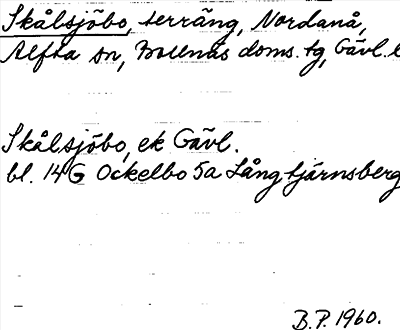 Skålsjöbo, terräng, Nordanå,
Alfta sn, Bollnäs doms. tg, Gävl. l
Skålsjöbo, ek Gävl.
bl. 14G Ockelbo 5a Långtjärnsberg
B.P. 1960.